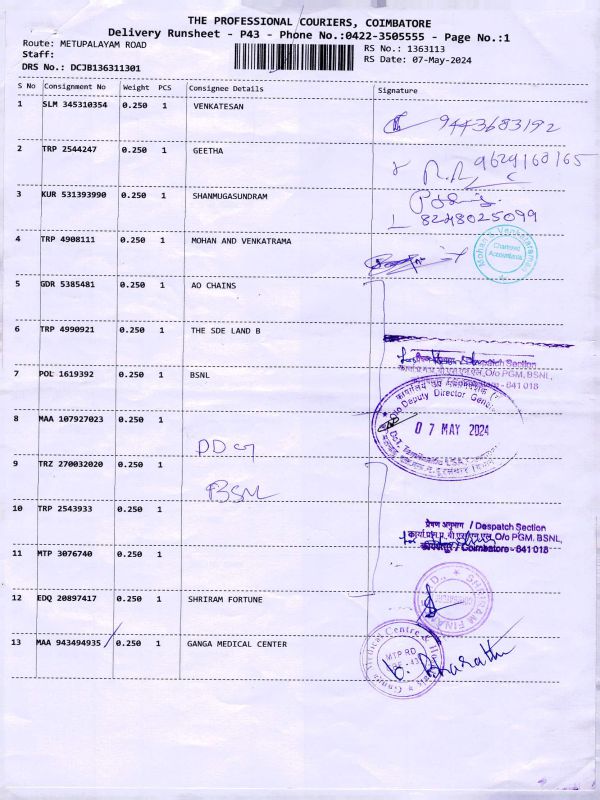 THE PROFESSIONAL COURIERS, COIMBATORE
Delivery Runsheet - P43 - Phone No.:0422-3505555 - Page No.:1
Route: METUPALAYAM ROAD
Staff:
DRS No.: DCJB136311301
RS No.: 1363113
RS Date: 07-May-2024
S No Consignment No Weight PCS Consignee Details Signature
1 SLM 345310354 0.250 1 VENKATESAN
9443683192
2 TRP 2544247 0.250 1 GEETHA
9629160165
3 KUR 531393990 0.250 1 SHANMUGASUNDRAM
8248025099
4 TRP 4908111 0.250 1 MOHAN AND VENKATRAMA
Chartered
Accountants
5 GDR 5385481 0.250 1 AO CHAINS
6 TRP 4990921 0.250 1 THE SDE LAND B
Despatch Section
O/o PGM, BSNL,
Coimbatore - 641 018
7 POL 1619392 0.250 1 BSNL
O/o Deputy Director
07 MAY 2024
8 MAA 107927023 0.250 1
DDG
9 TRZ 270032020 0.250 1
BSNL
10 TRP 2543933 0.250 1
प्रेषण अनुभाग / Despatch Section
O/o PGM, BSNL,
Coimbatore - 641 018
11 MTP 3076740 0.250 1
12 EDQ 20897417 0.250 1 SHRIRAM FORTUNE
SHRIRAM
13 MAA 943494935 0.250 1 GANGA MEDICAL CENTER
Medical Centre &
MTP RD
Bharathi